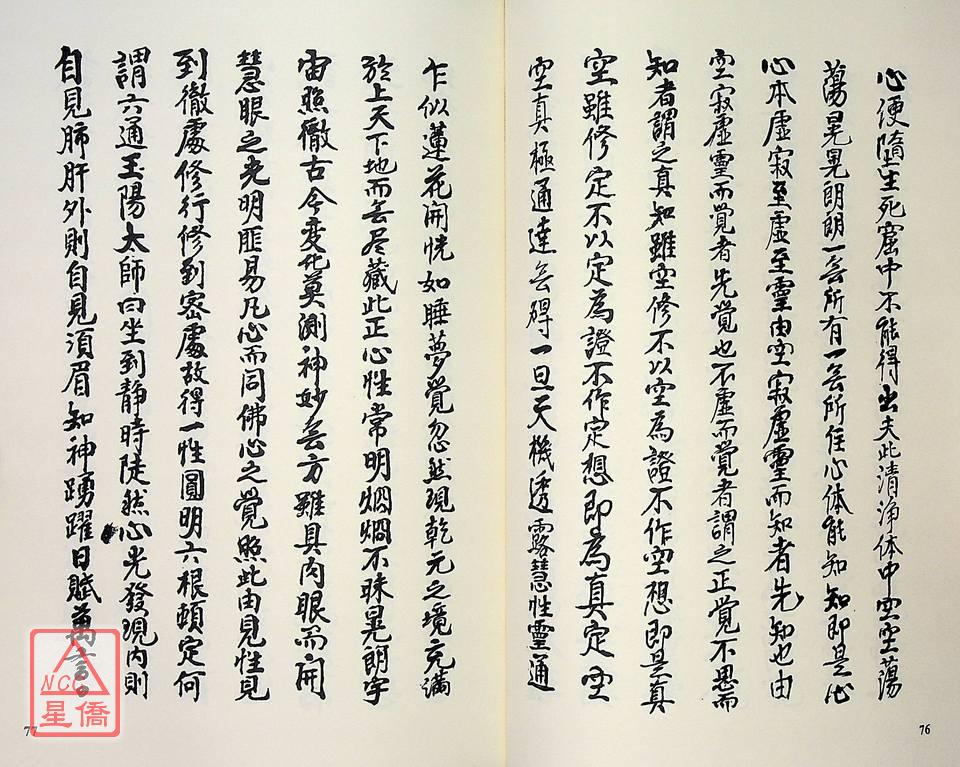 心便墮生死窟中不能得出夫此清淨体中空空蕩
蕩晃晃朗朗一無所有一無所住心体能知知即是心
心本虛寂至虛至靈由空寂虛靈而知者先知也由
空寂虛靈而覺者先覺也不虛而覺者謂之正覺不思而
知者謂之真知雖空修不以空為證不作空想即是真
空雖修定不以定為證不作定想即為真定空
空真極通達無碍一旦天機透露慧性靈通
乍似蓮花開恍如睡夢覺忽然現乾元之境充滿
於上天下地而無尽藏此正心性常明烱烱不昧晃朗宇
宙照徹古今変化莫測神妙無方雖具肉眼而開
慧眼之光明匪易凡心而同佛心之覺照此由見性見
到徹處修行修到密處故得一性圓明六根頓定何
謂六通玉陽太師曰坐到靜時陡然心光發現內則
自見肺肝外則自見須眉知神踴躍日賦萬言
76
77
NCC
星僑